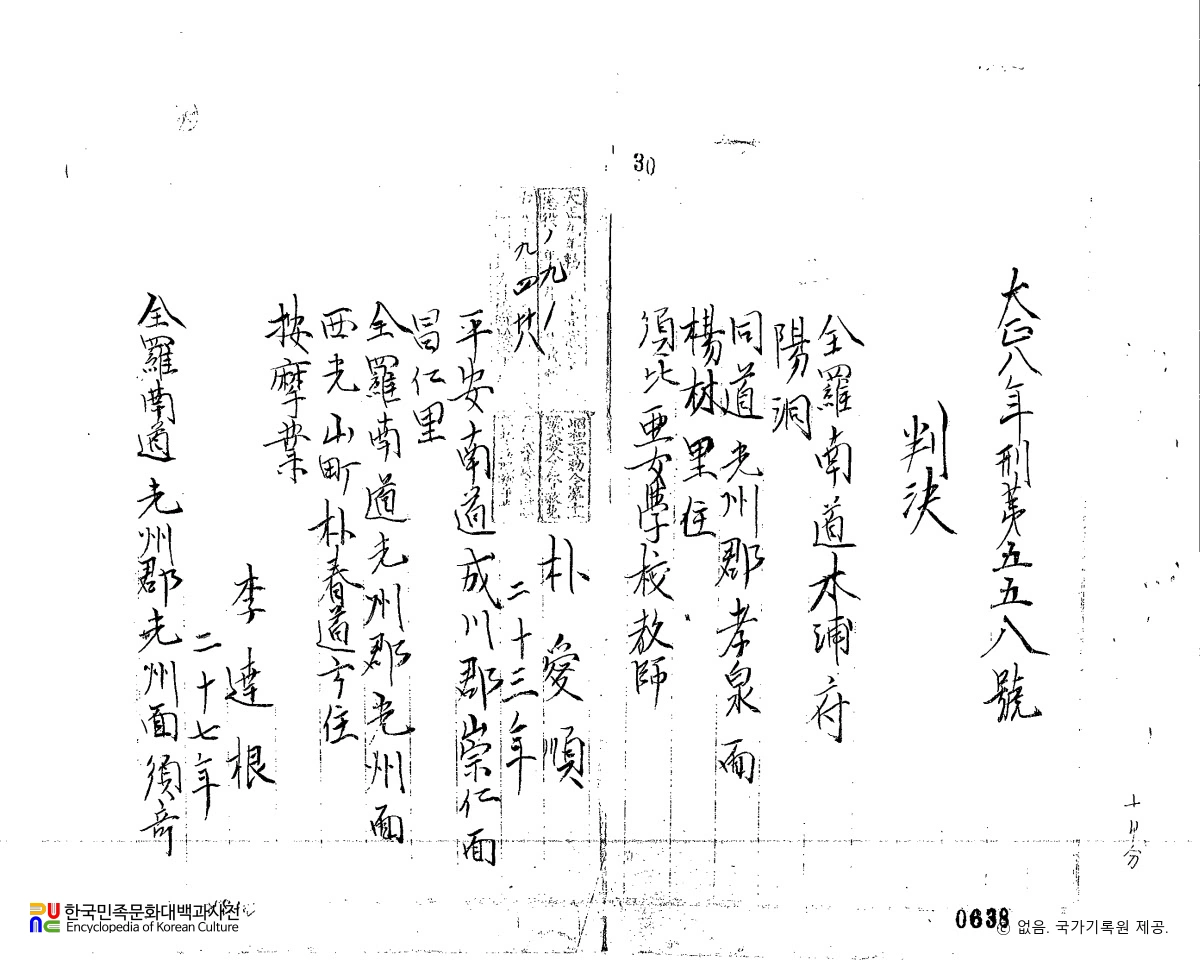 大正八年刑第五五八號
判決
全羅南道木浦府
陽洞
同道光州郡孝泉面
楊林里住
須比亜女學校教師
朴愛順
二十三年
平安南道成川郡崇仁面
昌仁里
全羅南道光州郡光州面
西光山町朴春道方住
按摩業
李達根
二十七年
全羅南道光州郡光州面須奇
30
十月分
0638
한국민족문화대백과사전
Encyclopedia of Korean Culture
© 없음. 국가기록원 제공.